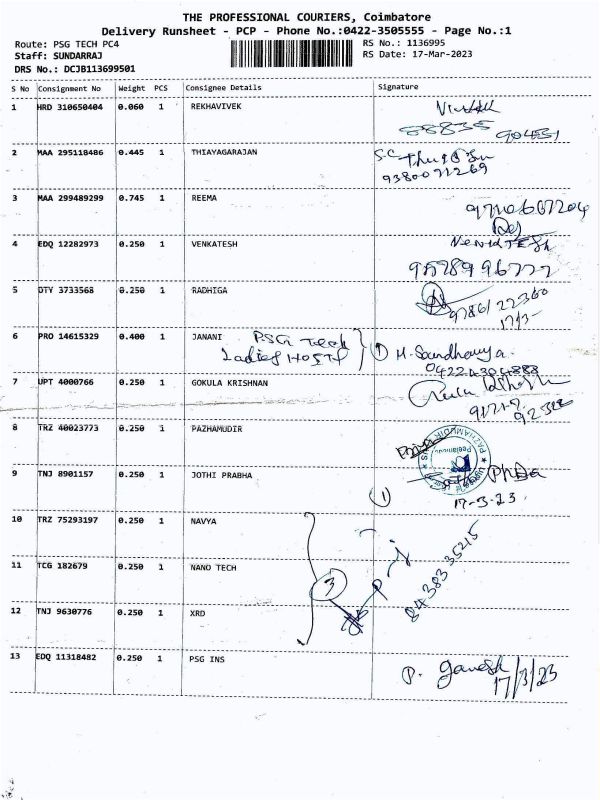 THE PROFESSIONAL COURIERS, Coimbatore
Delivery Runsheet - PCP - Phone No.:0422-3505555 - Page No.:1
Route: PSG TECH PC4 RS No.: 1136995
Staff: SUNDARRAJ RS Date: 17-Mar-2023
DRS No.: DCJB113699501
S No Consignment No Weight PCS Consignee Details Signature
1 HRD 310650404 0.060 1 REKHAVIVEK
90431
2 MAA 295118486 0.445 1 THIAYAGARAJAN S.C
9380071269
3 MAA 299489299 0.745 1 REEMA
4 EDQ 12282973 0.250 1 VENKATESH
9578996777
5 DTY 3733568 0.250 1 RADHIGA
9786122360
17/3-
6 PRO 14615329 0.400 1 JANANI PSG Tech
Ladies 1 M. Soundhawya.
04224304888
7 UPT 4000766 0.250 1 GOKULA KRISHNAN
8 TRZ 40023773 0.250 1 PAZHAMUDIR
9 TNJ 8901157 0.250 1 JOTHI PRABHA
1 17-3-23
10 TRZ 75293197 0.250 1 NAVYA
11 TCG 182679 0.250 1 NANO TECH
3 8438335215
12 TNJ 9630776 0.250 1 XRD
13 EDQ 11318482 0.250 1 PSG INS P. Ganesh
17/3/23